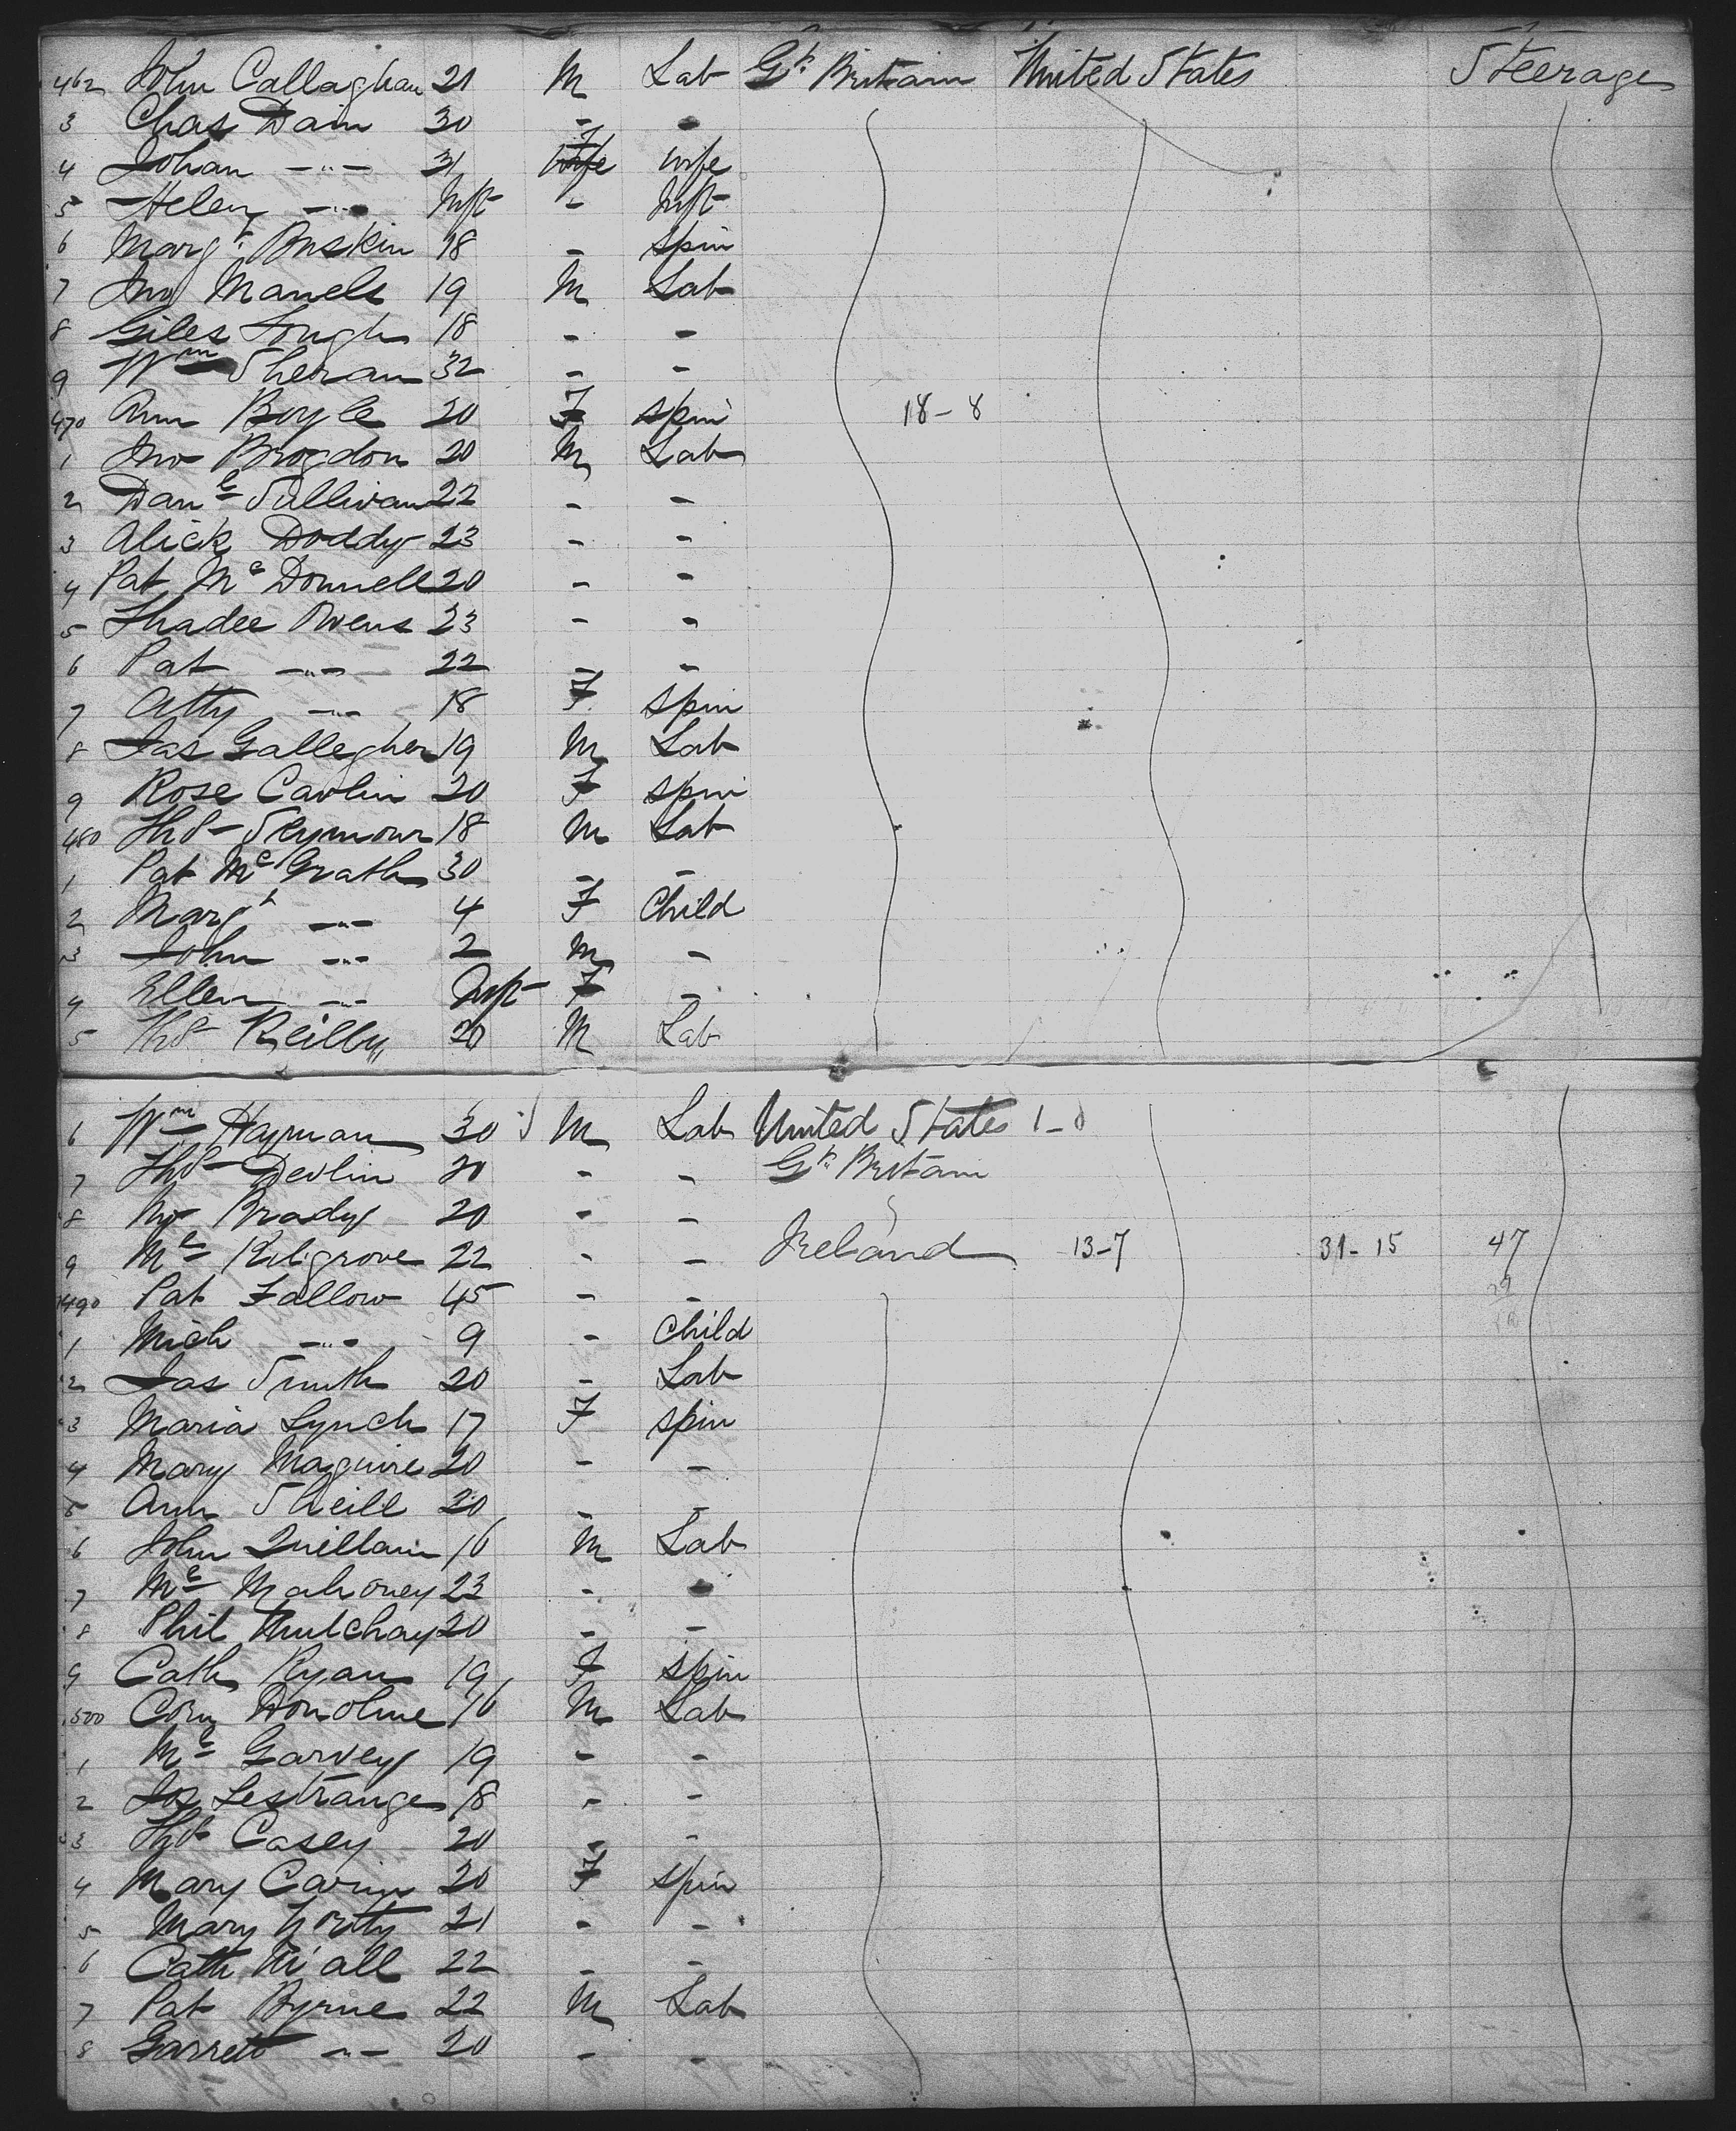 462 John Callaghan 21 M Lab Gt Britain United States Steerage
3 Chas Dain 30 - -
4 Johan -"- 31 F wife
5 Helen -"- Inft - Inft
6 Margt 18 - spin
7 Jno 19 M Lab
8 Giles Lough 18 - -
9 Wm Sheran 32 - -
470 Ann Boyle 20 F spin 18-8
1 Jno Brogdon 20 M Lab
2 Danl Sullivan 22 - -
3 Alick Doddy 23 - -
4 Pat McDonnell 20 - -
5 Thadee Owens 23 - -
6 Pat -"- 22 - -
7 Atty -"- 18 F spin
8 Jas Gallegher 19 M Lab
9 Rose Carlin 20 F spin
480 Thos Seymour 18 M Lab
1 Pat McGrath 30 - -
2 Margt -"- 4 F Child
3 John -"- 2 M -
4 Ellen -"- Inft F -
5 Thos Reilly 20 M Lab
6 Wm Hayman 30 M Lab United States 1-0
7 Thos Devlin 20 - - Gt Britain
8 Brady 20 - -
9 Ml Kilgrove 22 - - Ireland 13-7 31-15 47
490 Pat Fallow 45 - -
1 Mich -"- 9 - Child
2 Jas Smith 20 - Lab
3 Maria Lynch 17 F spin
4 Mary Maguire 20 - -
5 Ann Sheill 20 - -
6 John Quillain 16 M Lab
7 Ml Mahoney 23 - -
8 Phil 20 - -
9 Cath Ryan 19 F spin
500 Corn Donohue 16 M Lab
1 Ml Garvey 19 - -
2 Jos Lestrange 18 - -
3 Thos Casey 20 - -
4 Mary 20 F spin
5 Mary 21 - -
6 Cath 22 - -
7 Pat Byrne 22 M Lab
8 Garrett -"- 20 - -